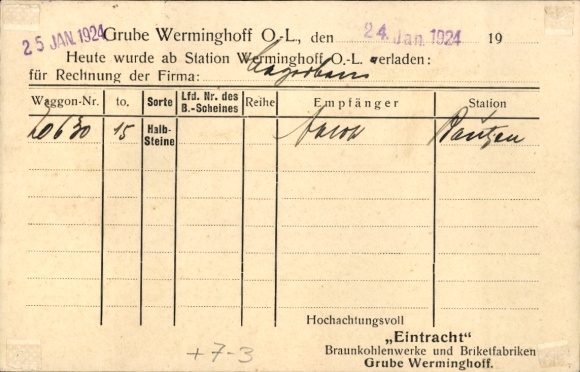 25 JAN. 1924 Grube Werminghoff O.-L., den 24. Jan. 1924 19
Heute wurde ab Station Werminghoff O.-L. verladen:
für Rechnung der Firma:
Waggon-Nr. to. Sorte Lfd. Nr. des B.-Scheines Reihe Empfänger Station
20630 15 Halb-Steine Bautzen
Hochachtungsvoll
„Eintracht"
Braunkohlenwerke und Briketfabriken
Grube Werminghoff.
+7-3